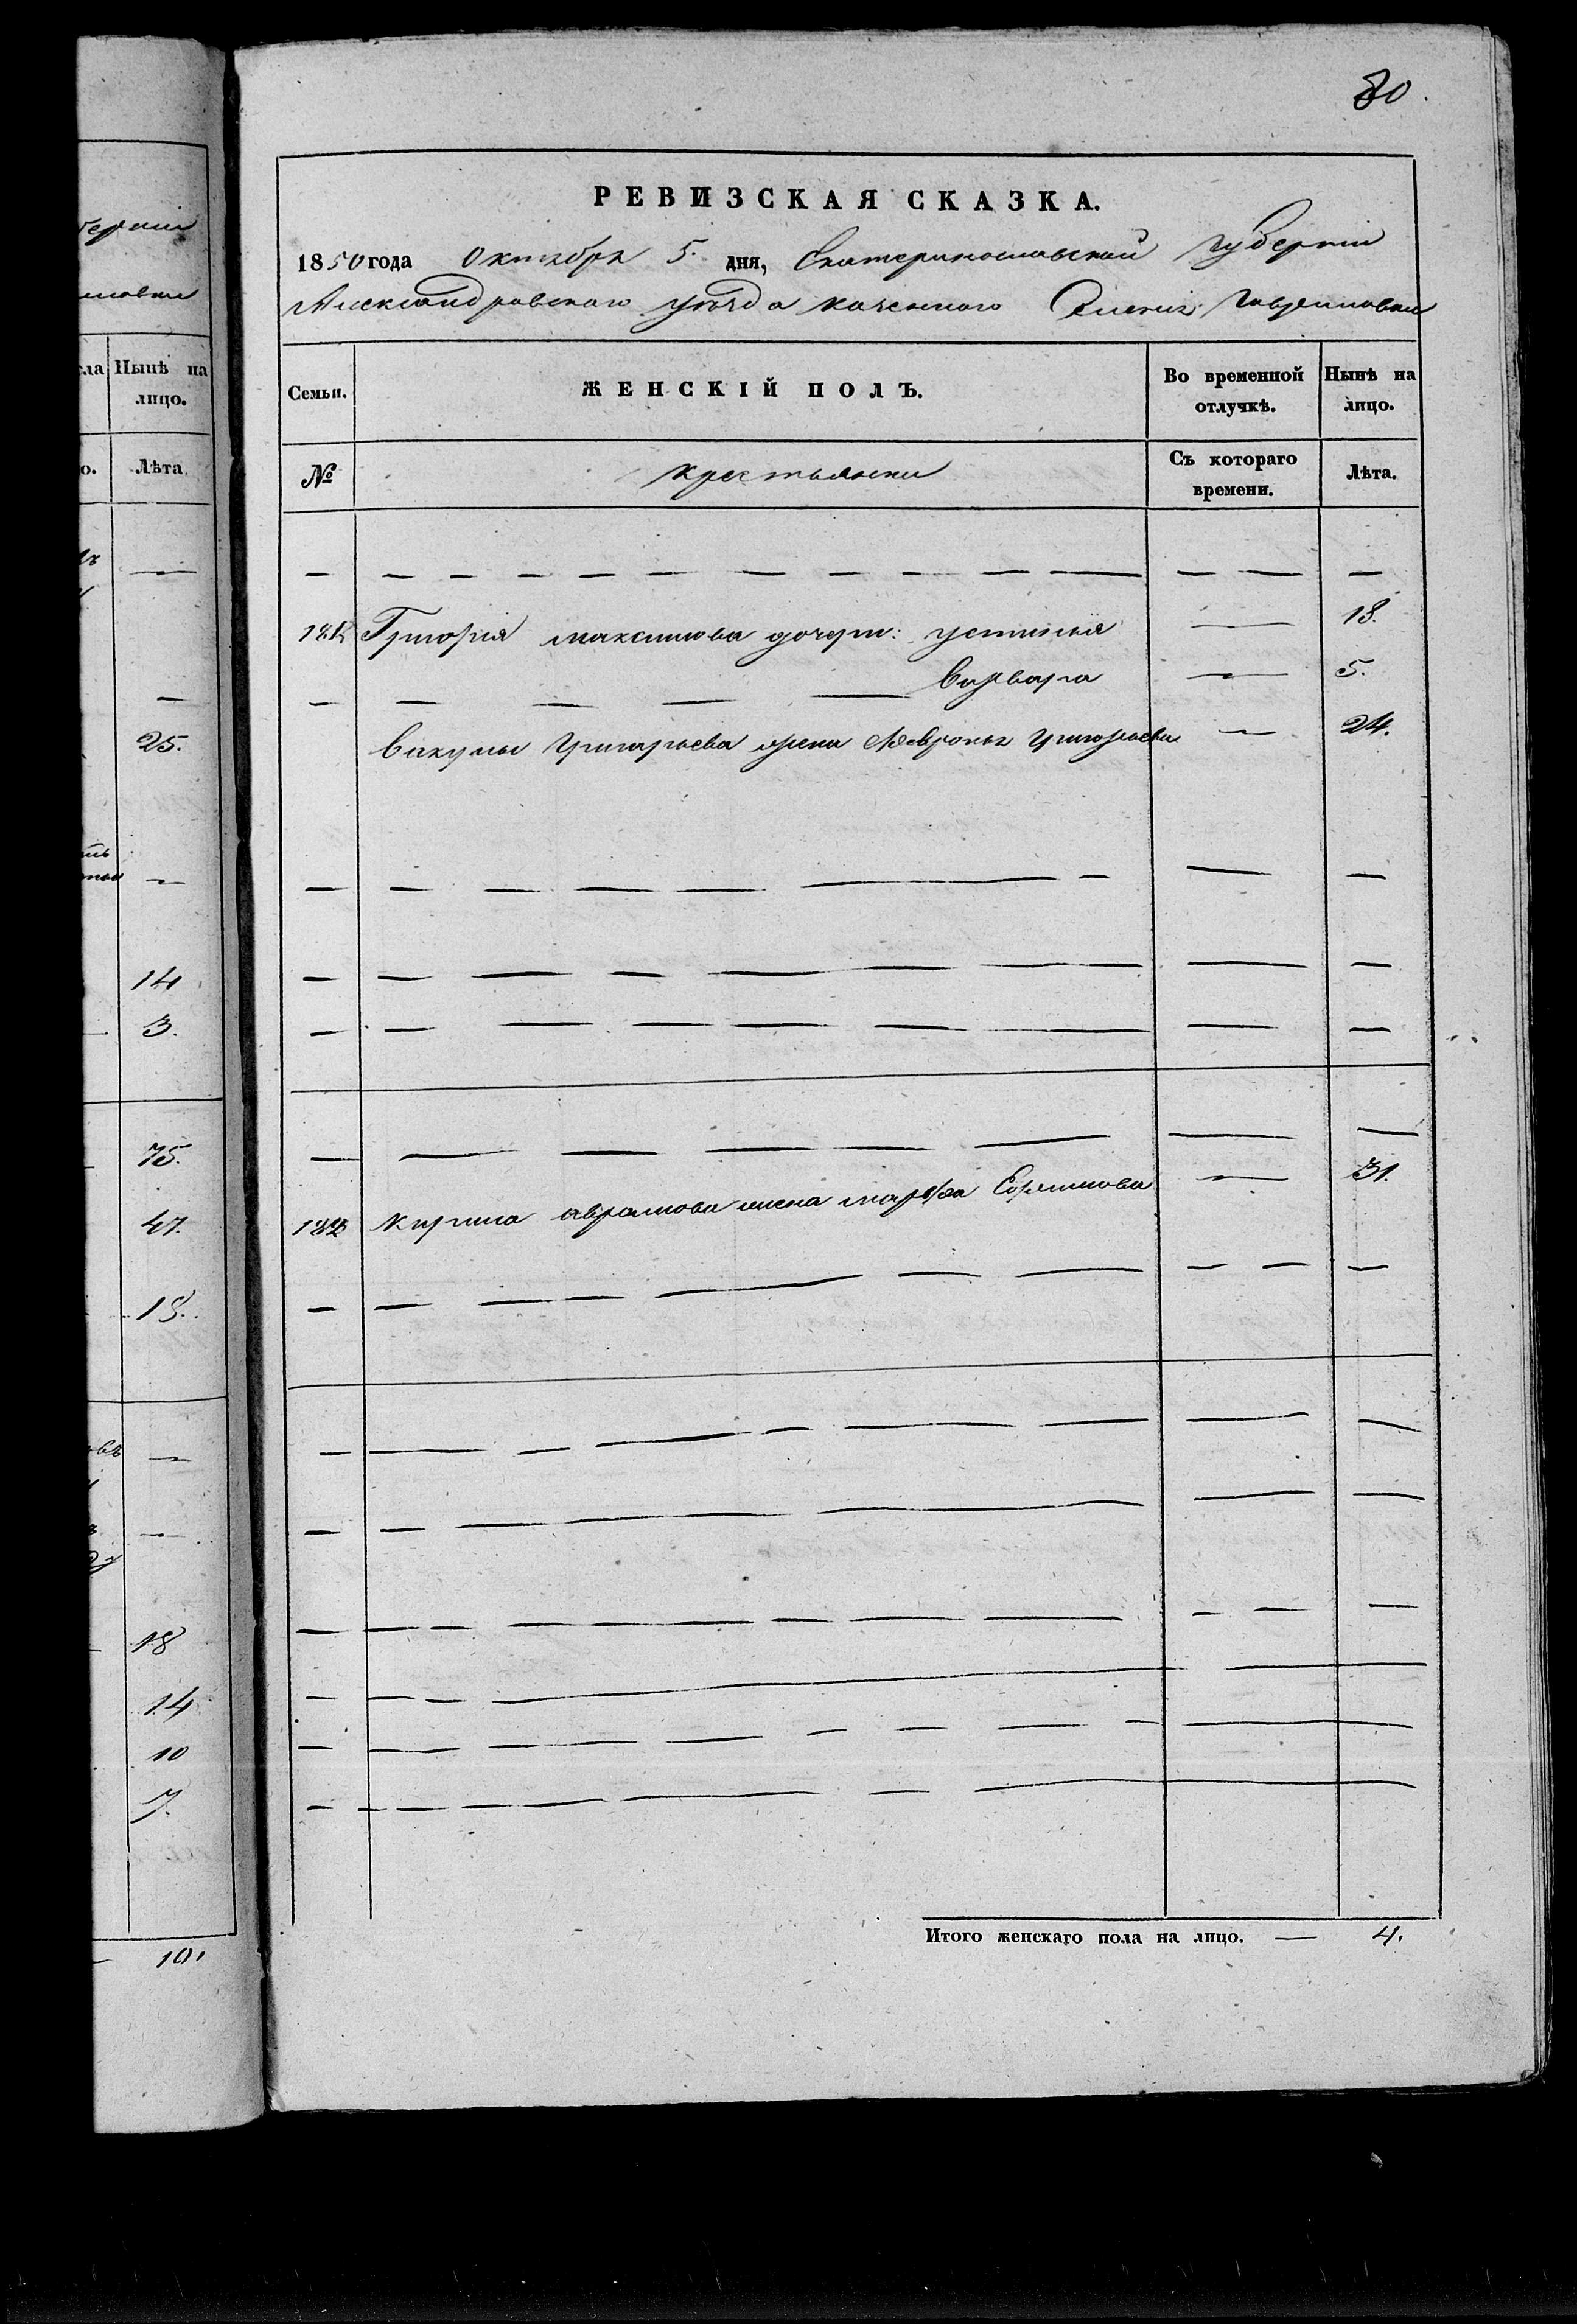 80.
РЕВИЗСКАЯ СКАЗКА.
1850 года Октября 5. дня, Екатеринославской Губернии
Александровскаго уезда казенного Селения Гавриловки
Семьи. ЖЕНСКІЙ ПОЛЪ. Во временной отлучкѣ. Нынѣ на лицо.
№ крестьянки Съ котораго времени. Лѣта.
Григорія максимова дочери: устинья — 18.
— — — — Варвара — 5.
Вакулы Григорьева жена Февронья Григорьева — 24.
Кирила аврамова жена марфа Ефимова — 31.
Итого женскаго пола на лицо. — 4.
Нынѣ на
лицо.
Лѣта
25.
14
3.
75.
47.
18.
18
14
10
7.
10.